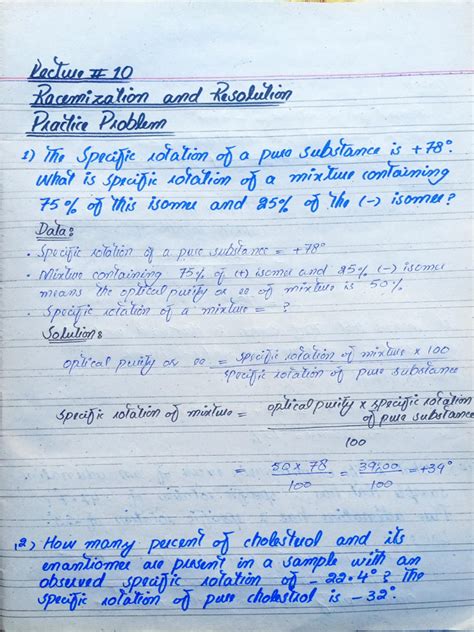 Lecture # 10
Racemization and Resolution
Practice Problem
1) The Specific rotation of a pure substance is +78°.
What is specific rotation of a mixture containing
75% of this isomer and 25% of the (-) isomer?
Data:
• Specific rotation of a pure substance = +78°
• Mixture containing 75% of (+) isomer and 25% (-) isomer
means the optical purity or ee of mixture is 50%
• Specific rotation of a mixture = ?
Solution:
optical purity or ee = specific rotation of mixture x 100
specific rotation of pure substance
specific rotation of mixture = optical purity x specific rotation
of pure substance
100
= 50 x 78 = 3900 = +39°
100 100
2) How many percent of cholesterol and its
enantiomer are present in a sample with an
observed specific rotation of - 22.4° ? The
specific rotation of pure cholestrol is - 32°.